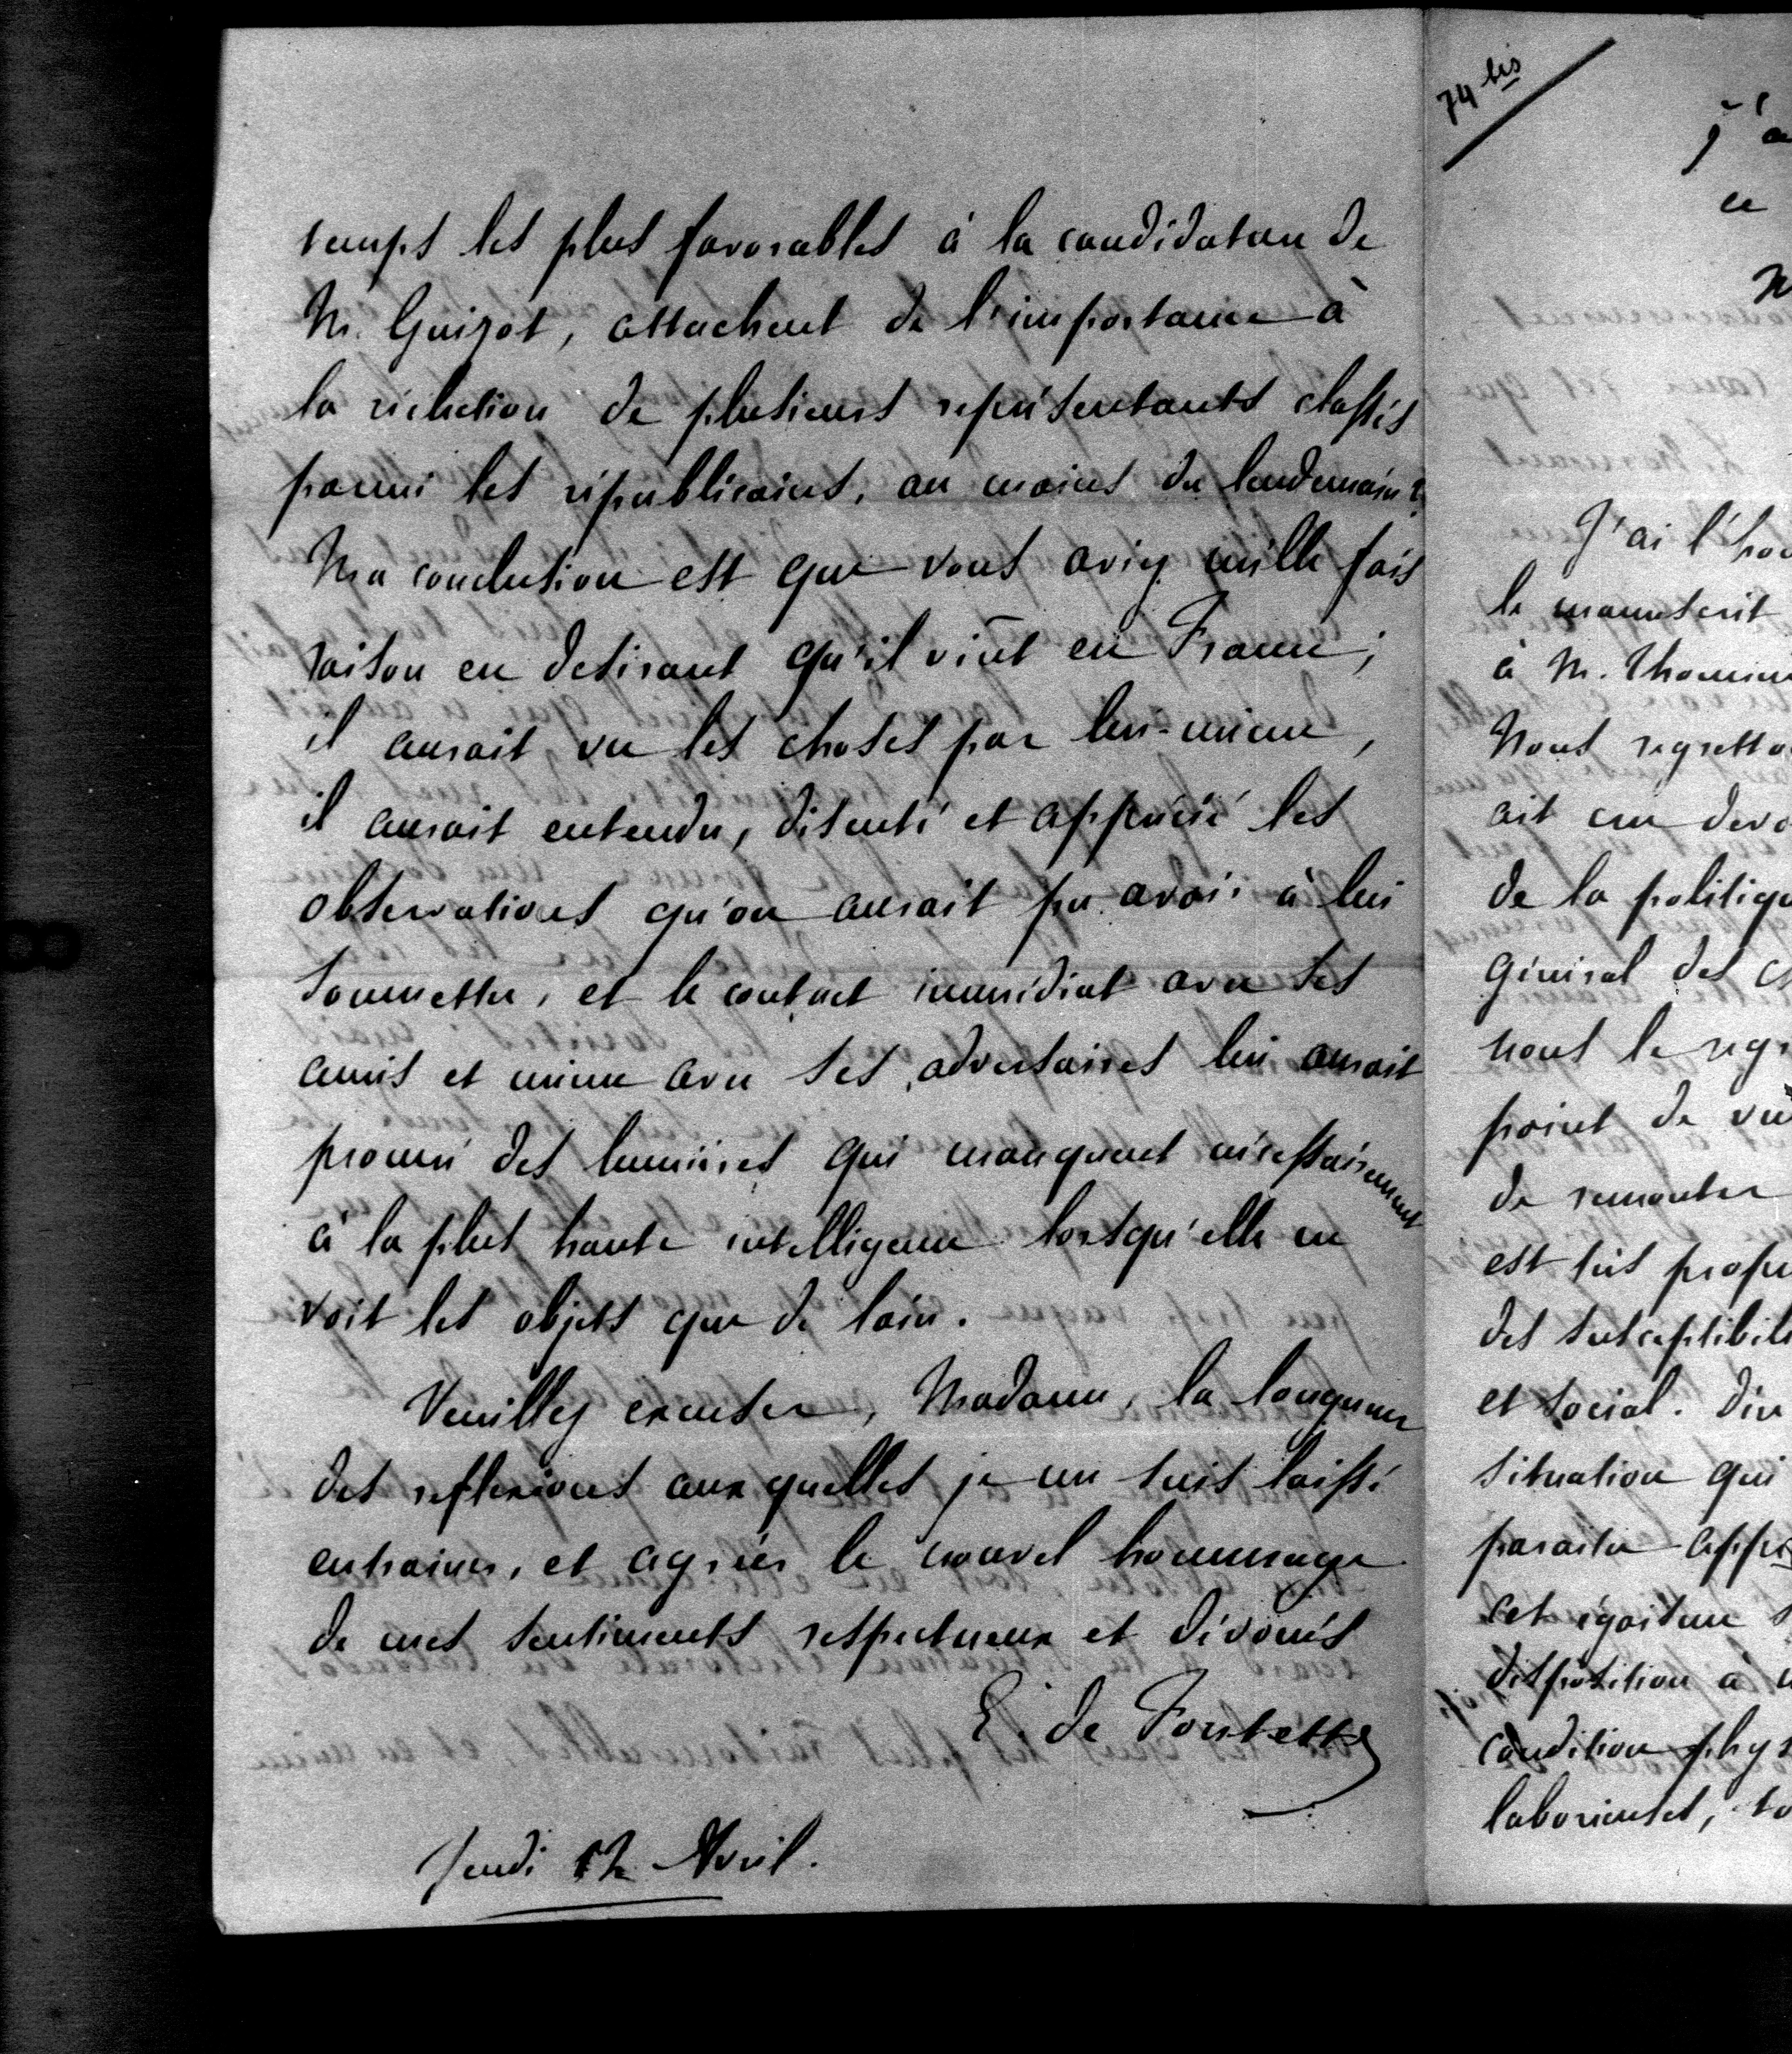 temps les plus favorables à la candidature de
M. Guizot, attachent de l'importance à
la réélection de plusieurs représentants classés
parmi les républicains, au moins du lendemain?
Ma conclusion est que vous aviez mille fois
raison en desirant qu'il vint en France;
il aurait vu les choses par lui-même,
il aurait entendu, discuté et apprécié les
observations qu'on aurait pu avoir à lui
soumettre, et le contact immédiat avec ses
amis et même avec ses adversaires lui aurait
procuré des lumières qui manquent nécessairement
à la plus haute intelligence lorsqu'elle ne
voit les objets que de loin.
Veuillez excuser, Madame, la longueur
des reflexions auxquelles je me suis laissé
entrainer, et agréer le nouvel hommage
de mes sentiments respectueux et dévoués
E. de Fontette
Jeudi 12 Avril.
74 bis
j'a
ce
J'ai l'hon
le manuscrit
à M. Thomine
Nous regretto
ait cru devo
de la politiqu
général des
nous le regr
point de vu
de remonter
est très propre
des susceptibili
et social. Din
situation qui
paraitre appr
cet égoïsme
disposition à
condition phys
laborieuses, to